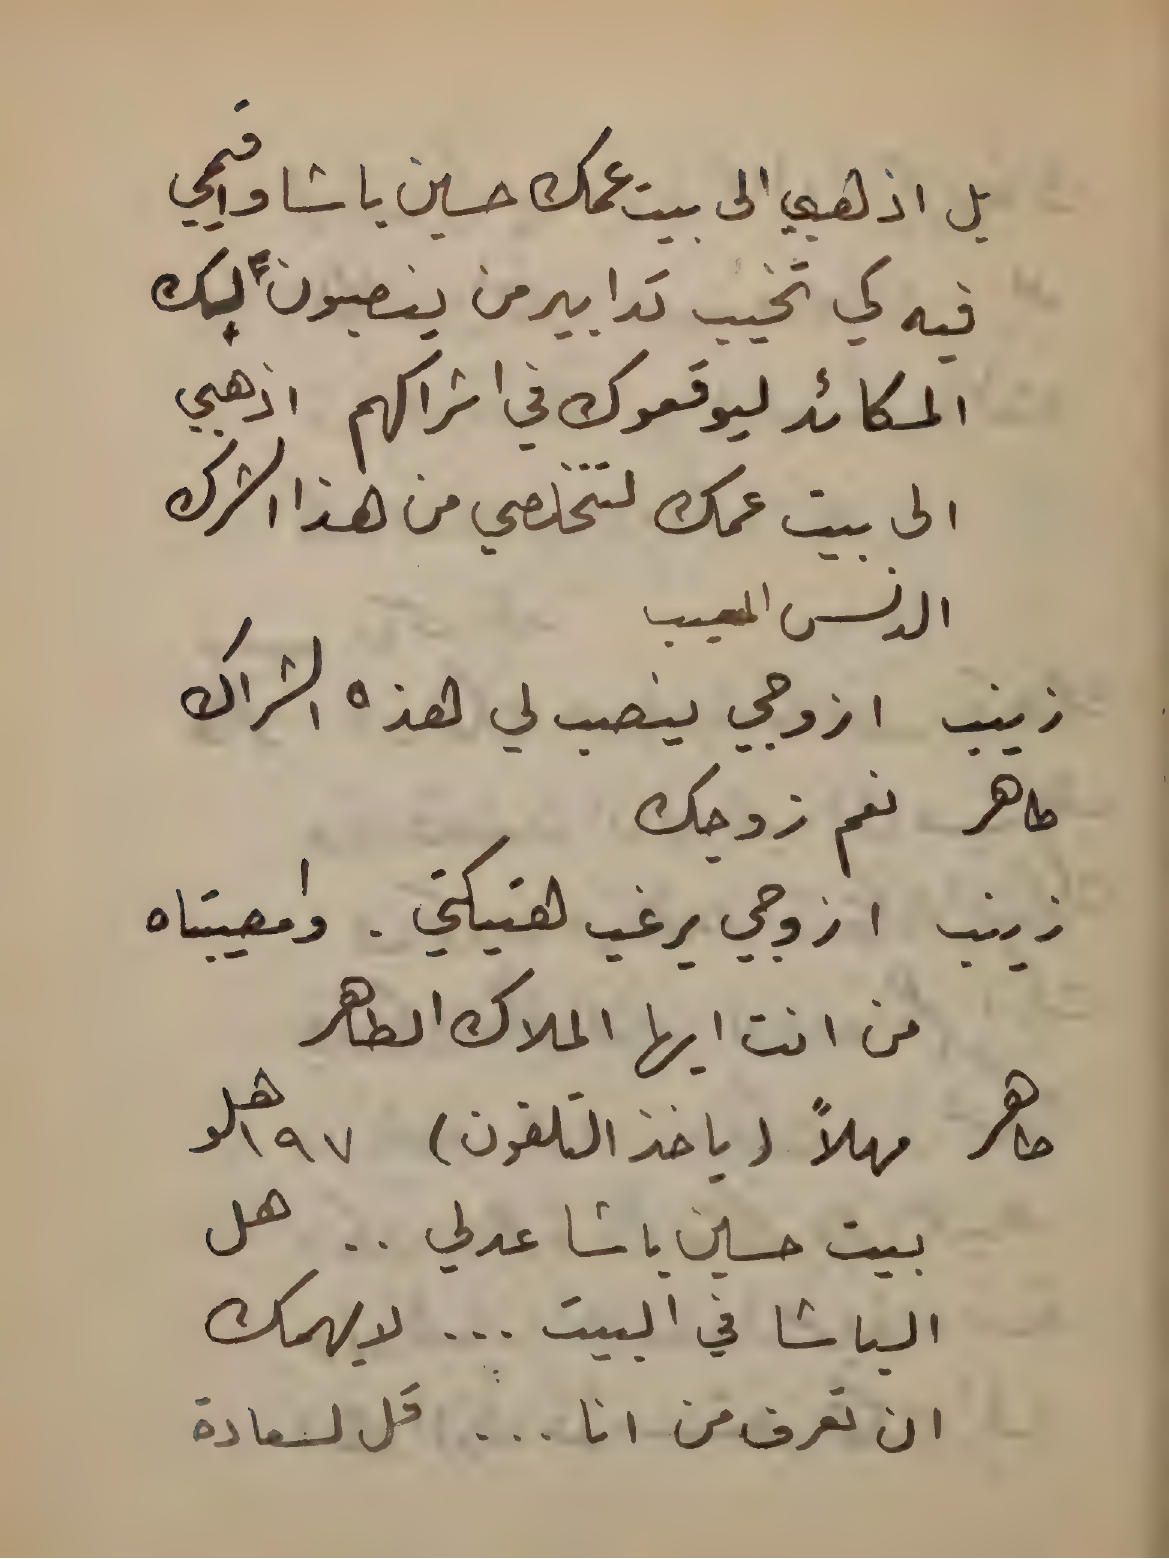 بل اذهبي الى بيت عمك حسين باشا واقيمي
فيه كي تخيب تدابير من ينصبون لك
المكائد ليوقعوك في اشراكهم اذهبي
الى بيت عمك لتتخلصي من هذا الشرك
الدنس المعيب
زينب ازوجي ينصب لي هذه الشراك
طاهر نعم زوجك
زينب ازوجي يرغب لهتيكتي . وامصيبتاه
من انت ايها الملاك الطاهر
طاهر مهلاً (ياخذ التلفون) ١٩٧ هلو
بيت حسين باشا عدلي .. هل
الباشا في البيت ... لا يهمك
ان تعرف من انا ... قل لسعادة